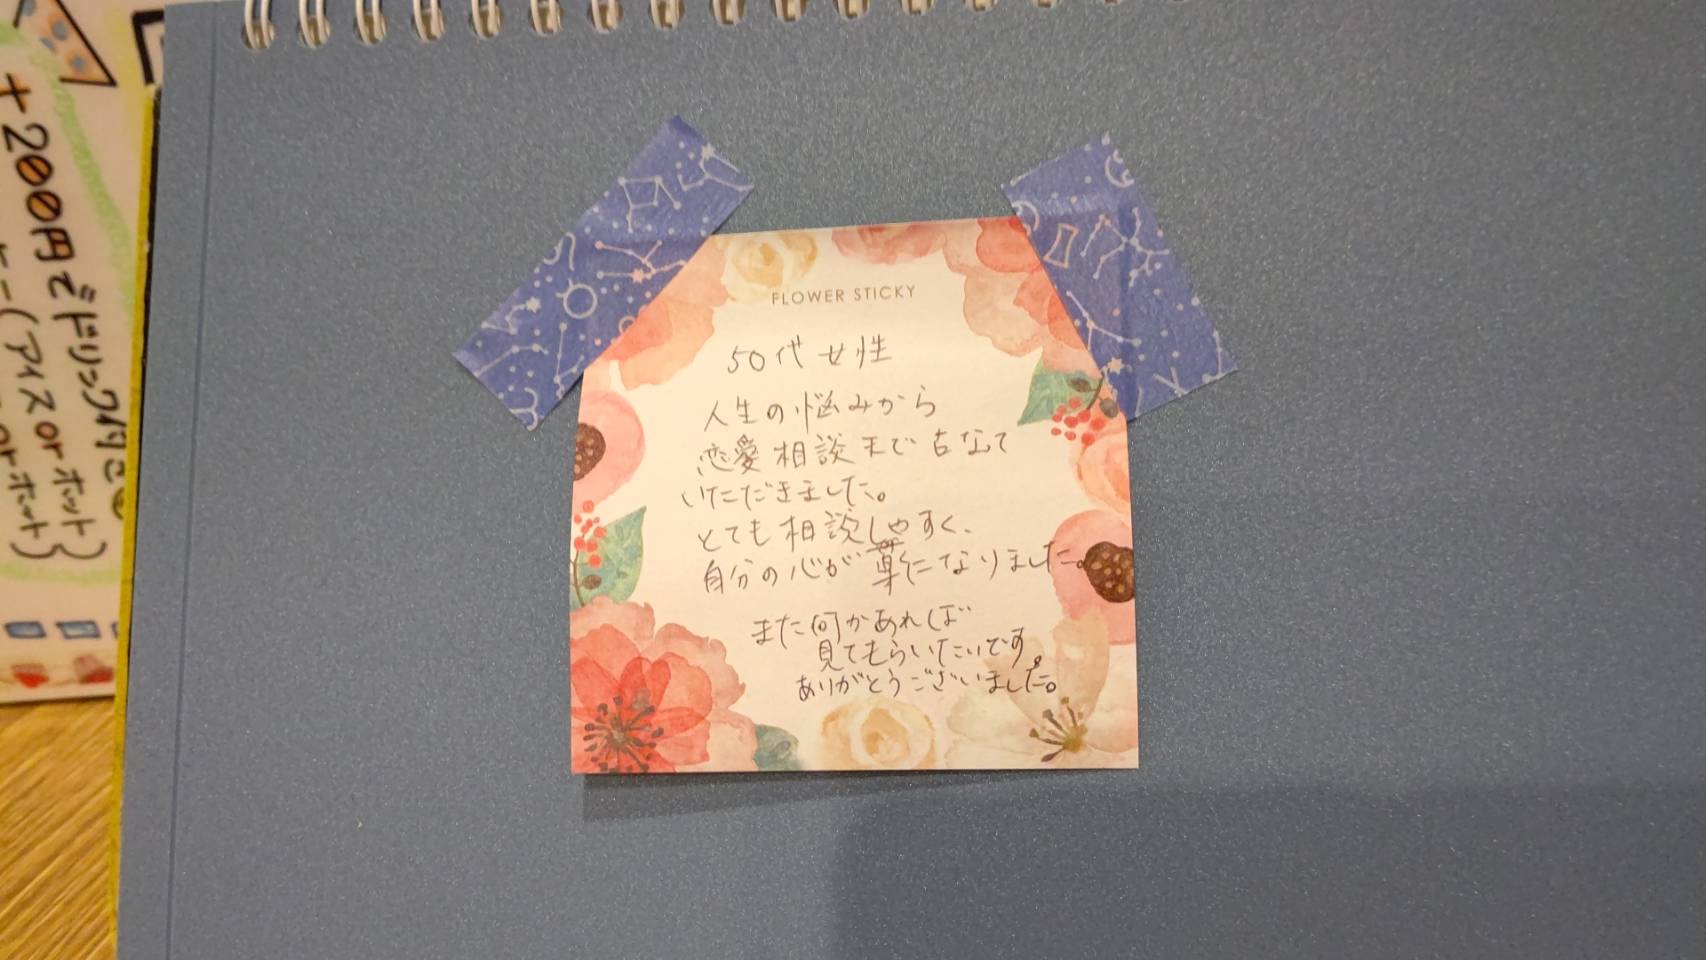 FLOWER STICKY
50代女性
人生の悩みから
恋愛相談まで占なって
いただきました。
とても相談しやすく、
自分の心が楽になりました。
また何かあれば
見てもらいたいです。
ありがとうございました。
+200円でドリンク付き
(アイス or ホット)
or ホット)